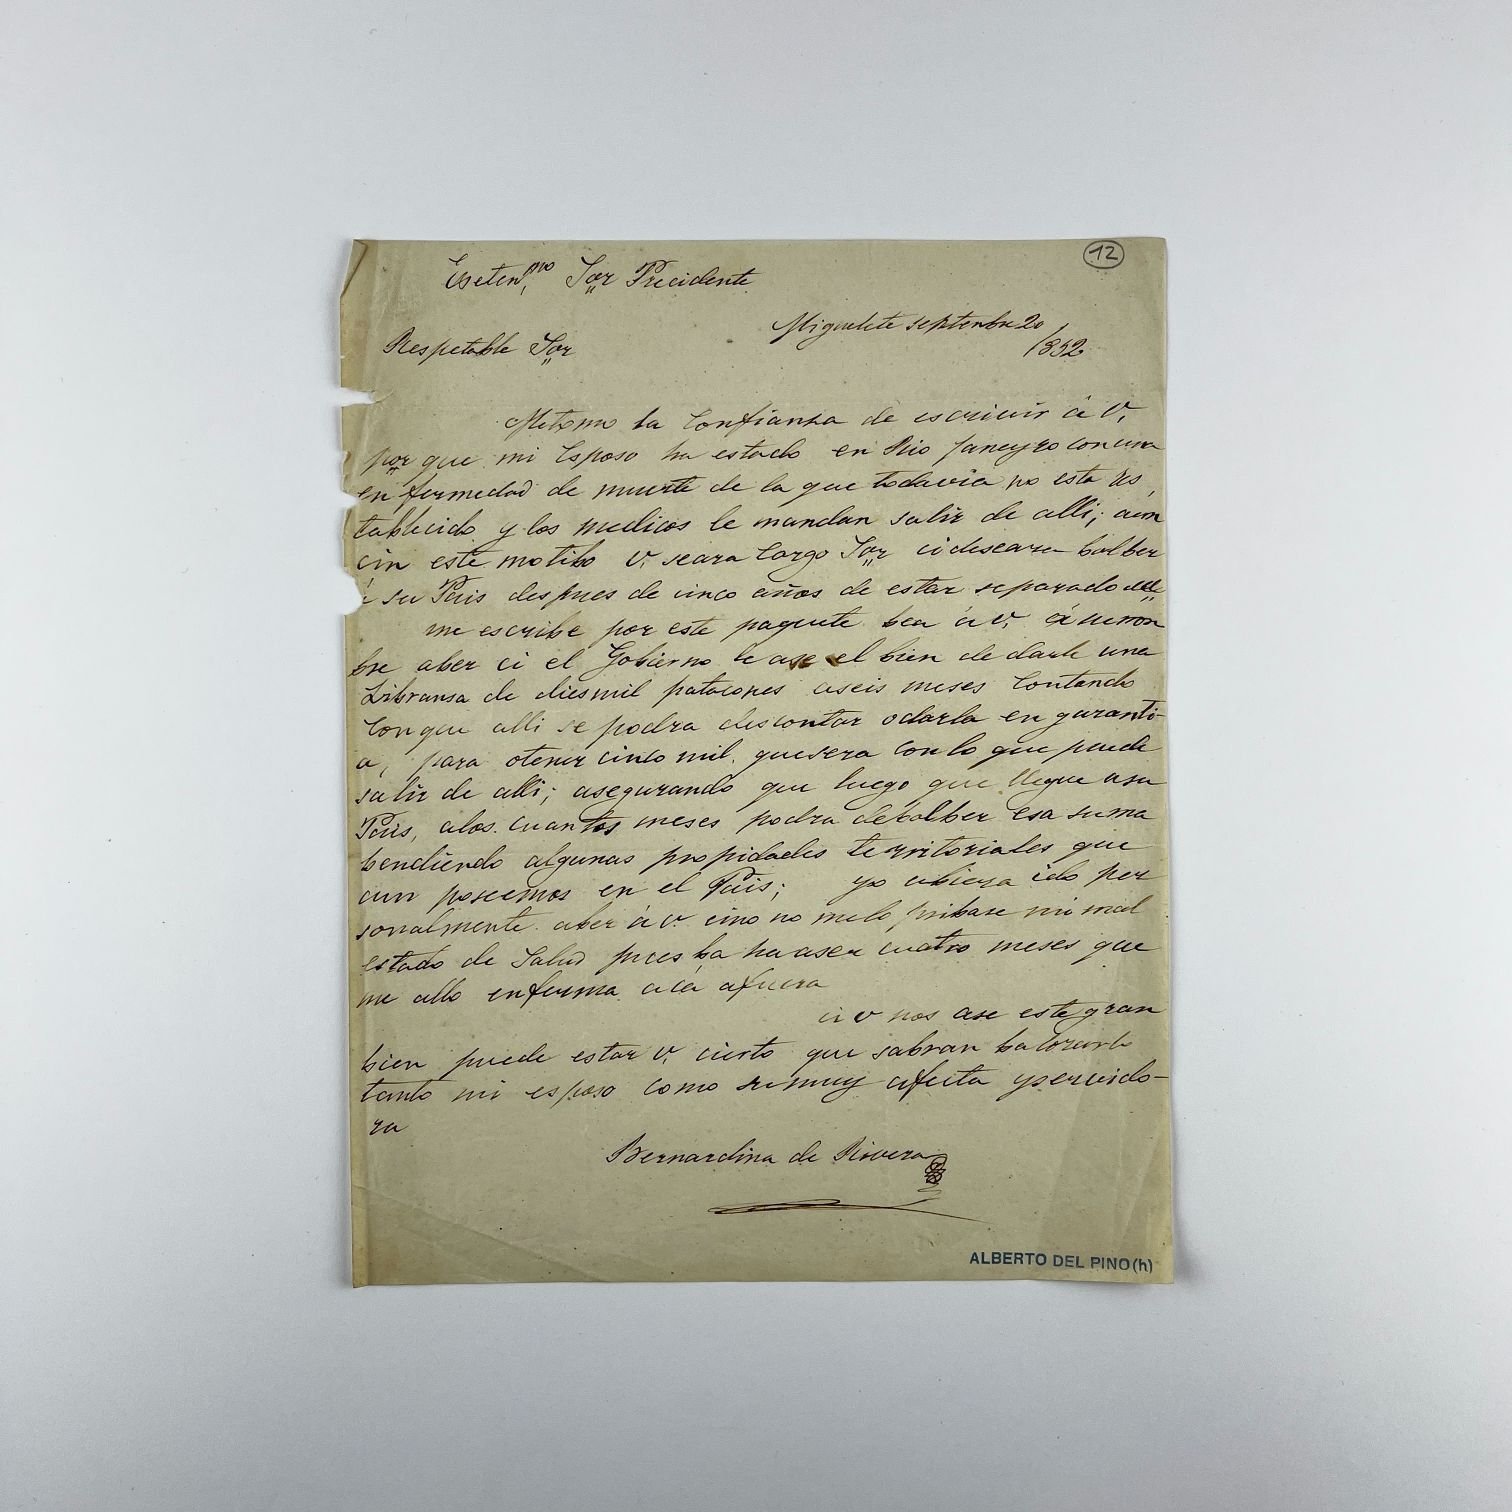 12
Eseten,mo Sor Precidente
Miguelete septenbre 20
/852
Respetable Sor
Metomo la Confiansa de escrivir á V,
por que mi Esposo ha estado en Rio Janeyro con una
en fermedad de muerte de la que todavia no esta res
tablecido y los medicos le mandan salir de alli; aun
cin este motibo V. seara Cargo Sor ci deseara bolber
á su Pais despues de cinco años de estar separado del
me escribe por este paquete bea á V. á su non
bre aber ci el Gobierno le ase el bien de darle una
Libransa de dies mil patacones aseis meses Contando
Con que alli se podra descontar odarla en garanti-
a, para otener cinco mil. quesera Con lo que puede
salir de alli; asegurando que luego que llegue asu
Pais, alos. cuantos meses podra debolber esa suma
bendiendo algunas propidades territoriales que
aun poseemos en el Pais; yo ubiera ido per
sonalmente. aber á V. cino no melo pribase mi mal
estado de Salud pues ba ha aser cuatro meses que
me allo enferma acá afuera
ci V nos ase este gran
bien puede estar V. cierto que sabran balorarlo
tanto mi esposo como su muy afecta yservido-
ra
Bernardina de Rivera
ALBERTO DEL PINO (h)